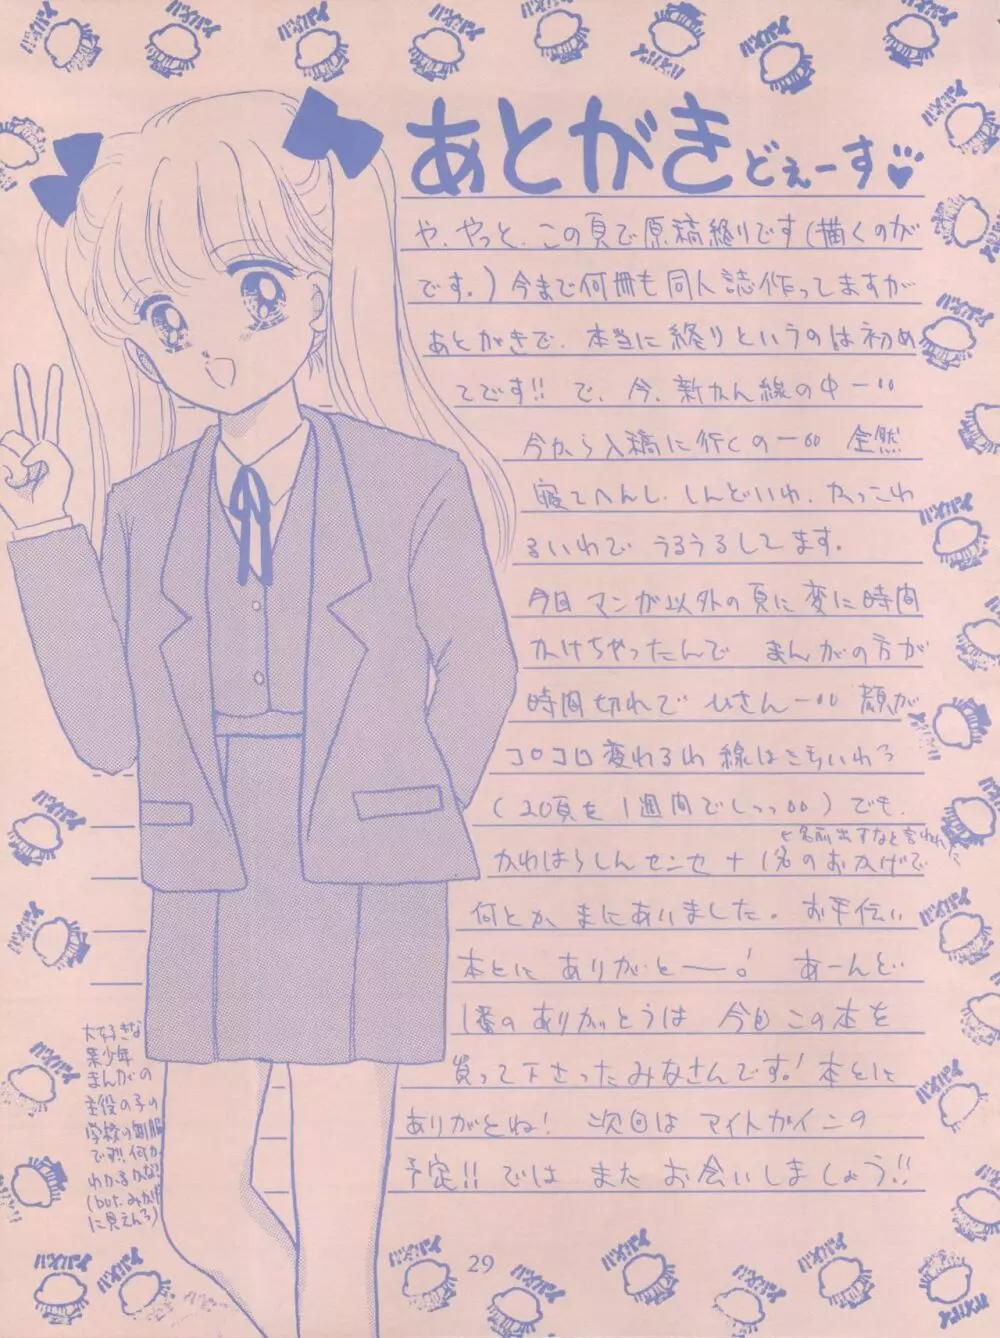 あとがきどぇーす♡
や、やっと、この頁で原稿終りです(描くのが
です。)今まで何冊も同人誌作ってますが
あとがきで、本当に終りというのは初め
てです!! で、今、新かん線の中ー
今から入稿に行くのー 全然
寝てへんし、しんどいわ、かっこわ
るいわで うるうるしてます。
今回マンガ以外の頁に変に時間
かけちゃったんで まんがの方が
時間切れで ひさんー 顔が
コロコロ変わるわ 線はきちゃいわ
(20頁を1週間でしっ)でも、
←名前出すなと言われた
かわはらしんセンセ+1名のおかげで
何とか まにあいました。 お手伝い
本とに ありがとー! あーんど
1番のありがとうは 今回この本を
買って下さったみなさんです! 本とに
ありがとね! 次回は マイトガインの
予定!! では また お会いしましょう!!
大好きな
某少年
まんがの
主役の子の
学校の制服
です!! 何か
わかるかな
(but.みかげ
に見えんろ)
バイバイ
29